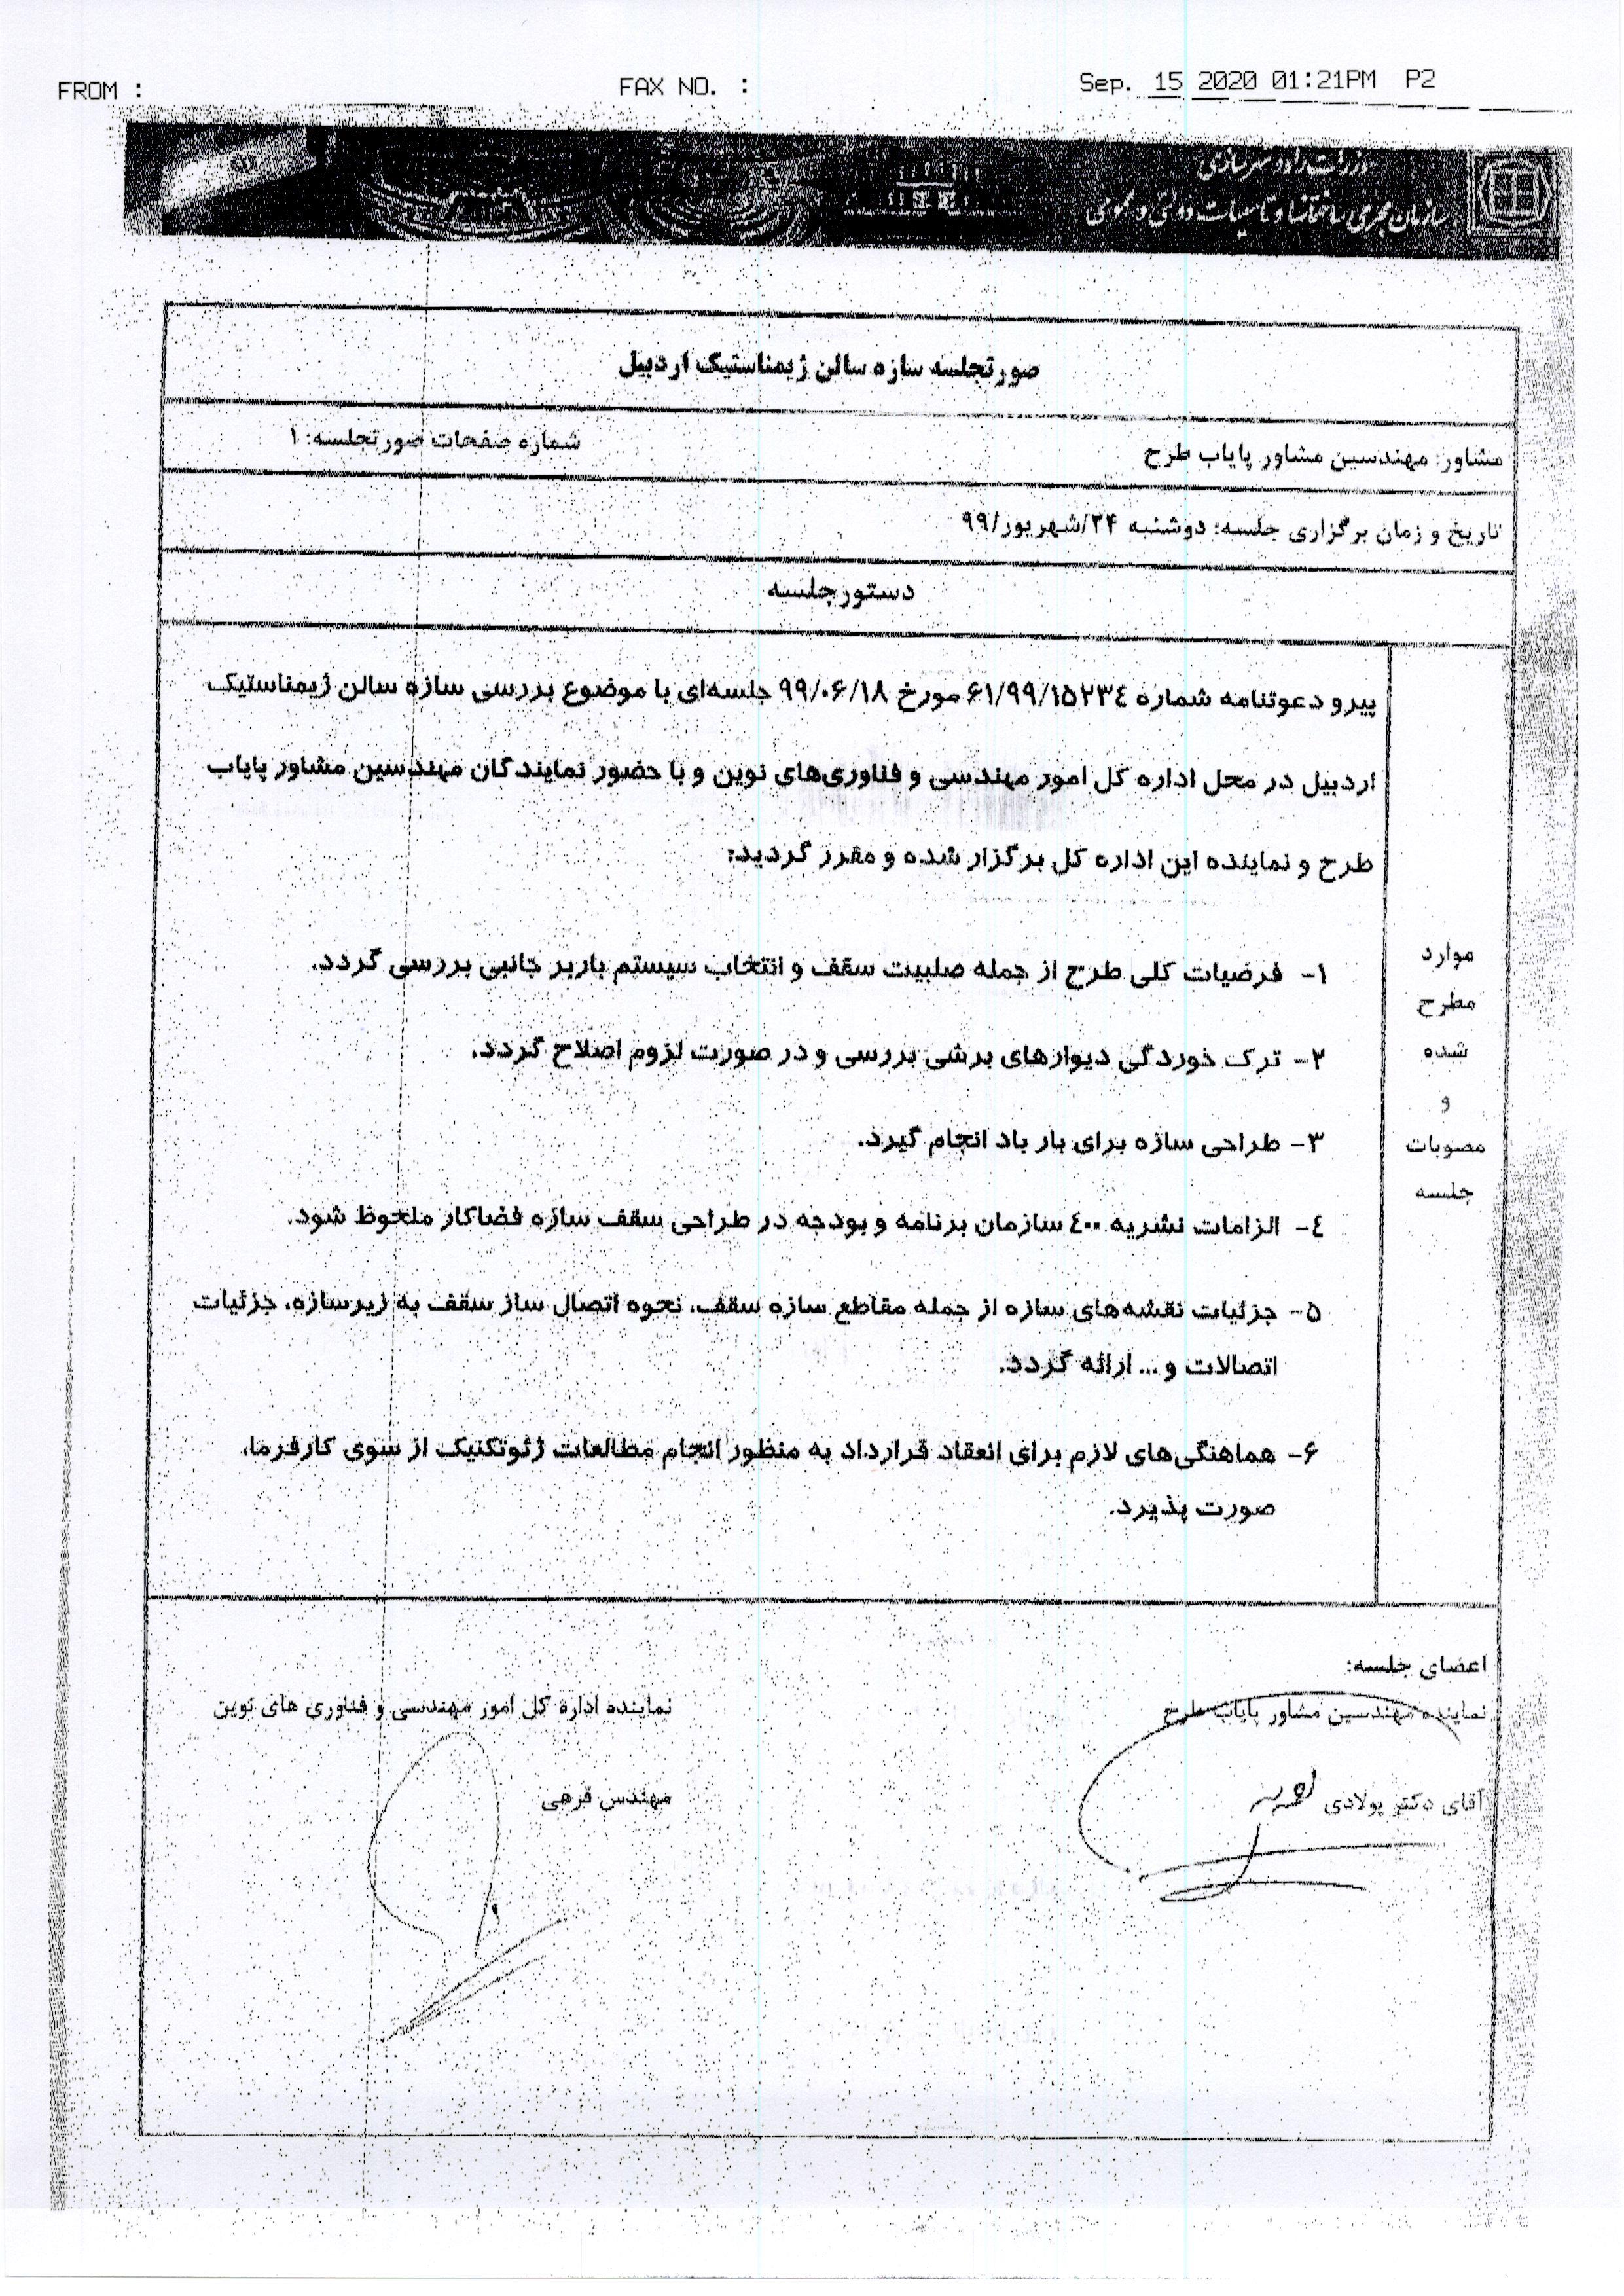 FROM :
FAX NO. :
Sep. 15 2020 01:21PM P2
وزارت راه و شهرسازی
سازمان مجری ساختمانها و تاسیسات دولتی و عمومی
صورتجلسه سازه سالن ژیمناستیک اردبیل
مشاور: مهندسین مشاور پایاب طرح
شماره صفحات صورتجلسه: ۱
تاریخ و زمان برگزاری جلسه: دوشنبه ۲۴/شهریور/۹۹
دستورجلسه
موارد
مطرح
شده
و
مصوبات
جلسه
پیرو دعوتنامه شماره ۶۱/۹۹/۱۵۲۳٤ مورخ ۹۹/۰۶/۱۸ جلسه‌ای با موضوع بررسی سازه سالن ژیمناستیک
اردبیل در محل اداره کل امور مهندسی و فناوری‌های نوین و با حضور نمایندگان مهندسین مشاور پایاب
طرح و نماینده این اداره کل برگزار شده و مقرر گردید:
۱- فرضیات کلی طرح از جمله صلبیت سقف و انتخاب سیستم باربر جانبی بررسی گردد.
۲- ترک خوردگی دیوارهای برشی بررسی و در صورت لزوم اصلاح گردد.
۳- طراحی سازه برای بار باد انجام گیرد.
٤- الزامات نشریه ٤۰۰ سازمان برنامه و بودجه در طراحی سقف سازه فضاکار ملحوظ شود.
۵- جزئیات نقشه‌های سازه از جمله مقاطع سازه سقف، نحوه اتصال ساز سقف به زیرسازه، جزئیات
اتصالات و ... ارائه گردد.
۶- هماهنگی‌های لازم برای انعقاد قرارداد به منظور انجام مطالعات ژئوتکنیک از سوی کارفرما،
صورت پذیرد.
اعضای جلسه:
نماینده مهندسین مشاور پایاب طرح
نماینده اداره کل امور مهندسی و فناوری های نوین
آقای دکتر پولادی
مهندس فرهی